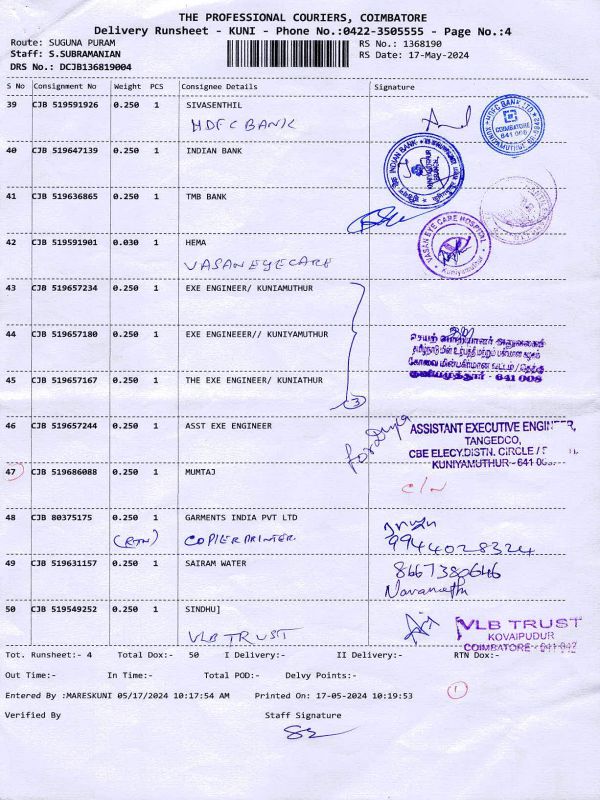 THE PROFESSIONAL COURIERS, COIMBATORE
Delivery Runsheet - KUNI - Phone No.:0422-3505555 - Page No.:4
Route: SUGUNA PURAM RS No.: 1368190
Staff: S.SUBRAMANIAN RS Date: 17-May-2024
DRS No.: DCJB136819004
S No Consignment No Weight PCS Consignee Details Signature
39 CJB 519591926 0.250 1 SIVASENTHIL
HDFC BANK
HDFC BANK LTD
COIMBATORE
641 008
40 CJB 519647139 0.250 1 INDIAN BANK
INDIAN BANK
41 CJB 519636865 0.250 1 TMB BANK
42 CJB 519591901 0.030 1 HEMA
VASAN EYE CARE
VASAN EYE CARE HOSPITAL
Kuniyamuthur
43 CJB 519657234 0.250 1 EXE ENGINEER/ KUNIAMUTHUR
44 CJB 519657180 0.250 1 EXE ENGINEEER// KUNIYAMUTHUR
செயற் பொறியாளர் அலுவலகம்
கோவை மின்பகிர்மான வட்டம் / தெற்கு
குனியமுத்தூர் - 641 008
45 CJB 519657167 0.250 1 THE EXE ENGINEER/ KUNIATHUR
3
46 CJB 519657244 0.250 1 ASST EXE ENGINEER
for Divya
ASSISTANT EXECUTIVE ENGINEER,
TANGEDCO,
CBE ELECY.DISTN. CIRCLE /
KUNIYAMUTHUR - 641 008.
47 CJB 519686088 0.250 1 MUMTAJ
C/N
48 CJB 80375175 0.250 1 GARMENTS INDIA PVT LTD
(RTN) COPIER PRINTER.
9944028324
49 CJB 519631157 0.250 1 SAIRAM WATER
8667380646
Navaneeth
50 CJB 519549252 0.250 1 SINDHU]
VLB TRUST
VLB TRUST
KOVAIPUDUR
COIMBATORE - 641 042
Tot. Runsheet:- 4 Total Dox:- 50 I Delivery:- II Delivery:- RTN Dox:-
Out Time:- In Time:- Total POD:- Delvy Points:-
1
Entered By :MARESKUNI 05/17/2024 10:17:54 AM Printed On: 17-05-2024 10:19:53
Verified By Staff Signature